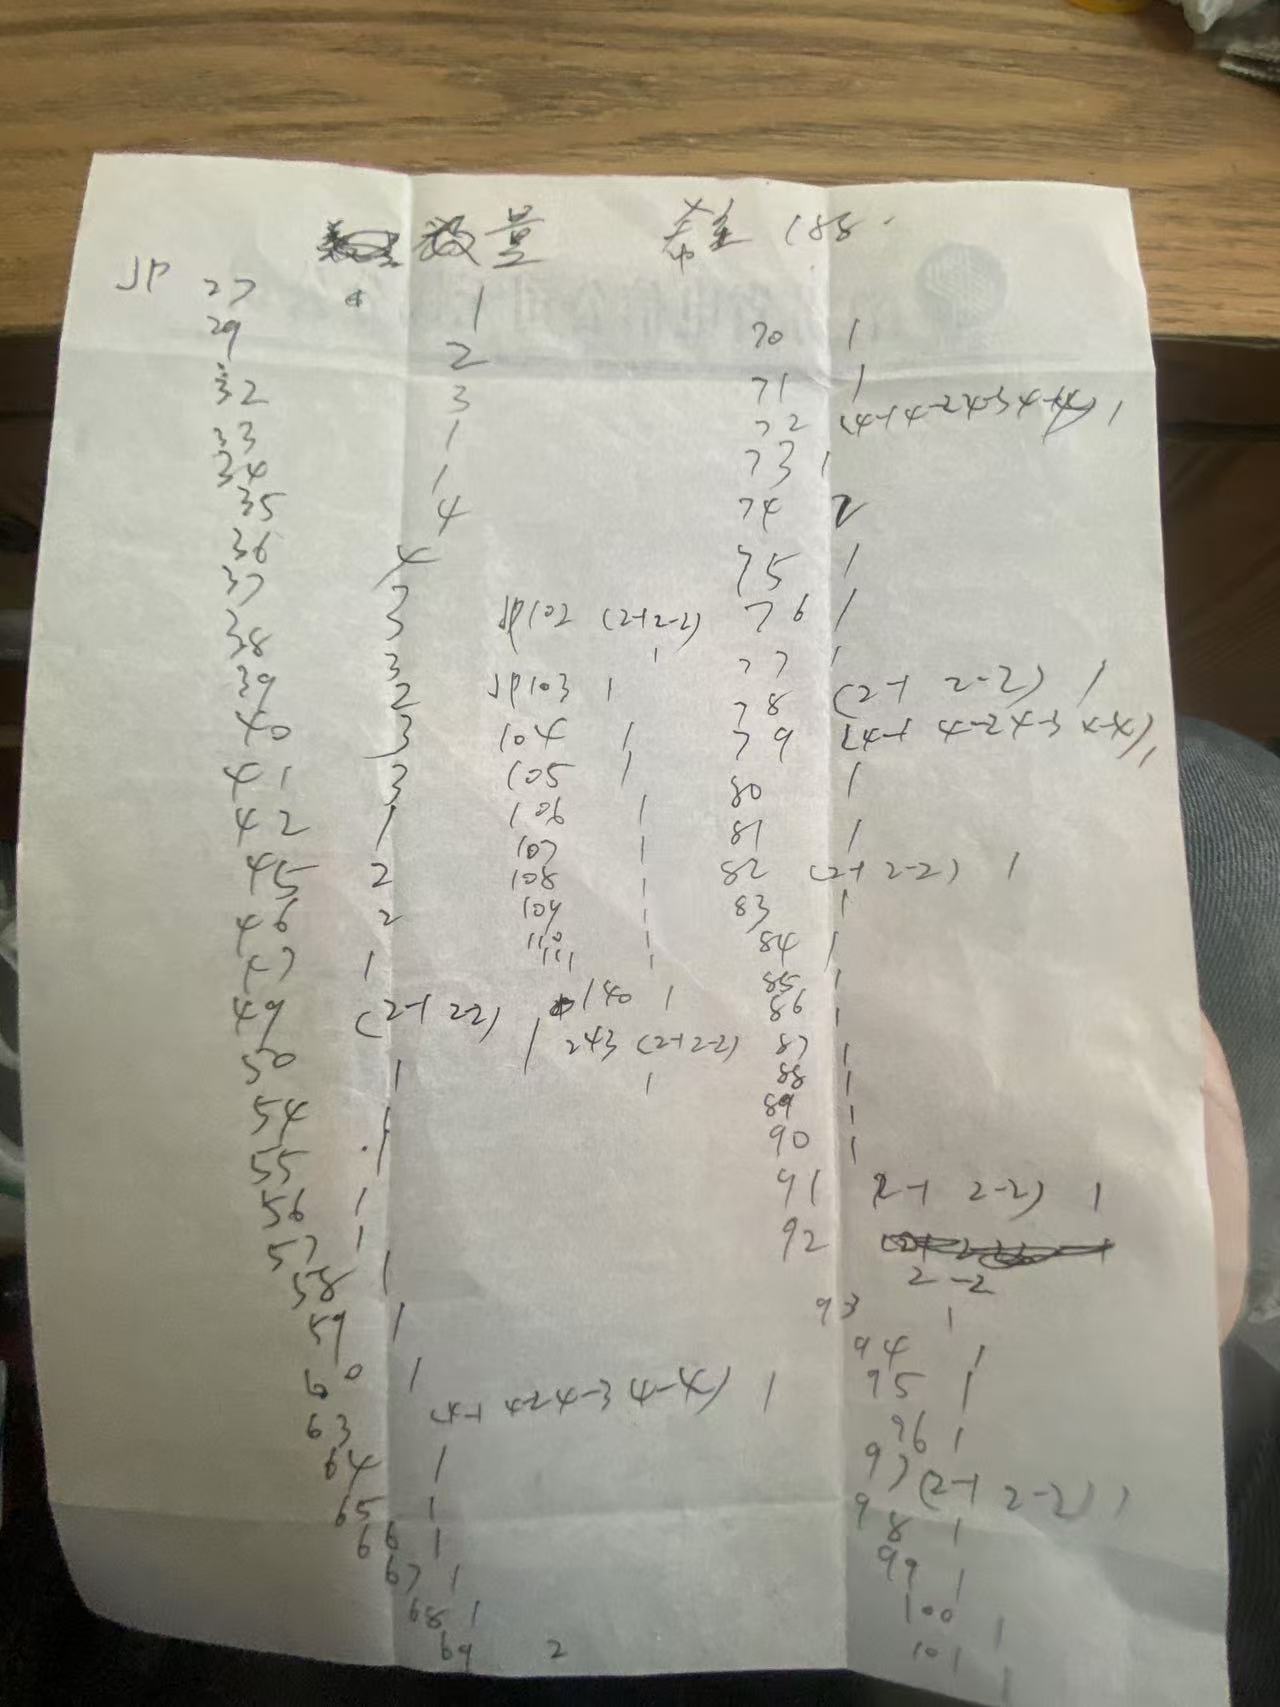 数量
希金 188.
JP 27 1
29 2
32 3
33 1
34 1
35 4
36 4
37 3
38 3
39 2
40 3
41 3
42 1
45 2
46 2
47 1
49 (2-1 2-2) 1
50 1
54 1
55 1
56 1
57 1
58 1
59 1
60 1
63 (4-1 4-2 4-3 4-4) 1
64 1
65 1
66 1
67 1
68 1
69 2
JP102 (2-1 2-2) 1
JP103 1
104 1
105 1
106 1
107 1
108 1
109 1
110 1
111 1
140 1
243 (2-1 2-2) 1
70 1
71 1
72 (4-1 4-2 4-3 4-4) 1
73 1
74 2
75 1
76 1
77 1
78 (2-1 2-2) 1
79 (4-1 4-2 4-3 4-4) 1
80 1
81 1
82 (2-1 2-2) 1
83 1
84 1
85 1
86 1
87 1
88 1
89 1
90 1
91 (2-1 2-2) 1
92 2-2
93 1
94 1
95 1
96 1
97 (2-1 2-2) 1
98 1
99 1
100 1
101 1